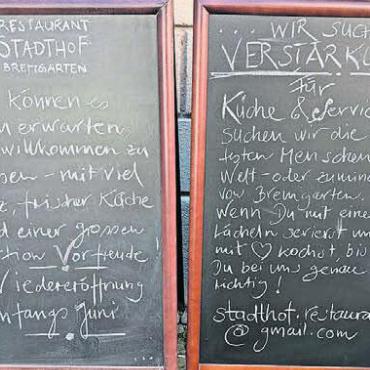 RESTAURANT
STADTHOF
BREMGARTEN
können es
erwarten
willkommen zu
mit viel
frischer Küche
einer grossen
Vorfreude!
Wiedereröffnung
Anfangs Juni
... WIR SUCH
VERSTÄRKU
für
Küche & Service
suchen wir die
Menschen
Welt - oder zumin
von Bremgarten.
Wenn Du mit eine
Lächeln servierst un
mit ♡ kochst, bis
Du bei uns genau
richtig!
stadthof.restaura
@gmail.com